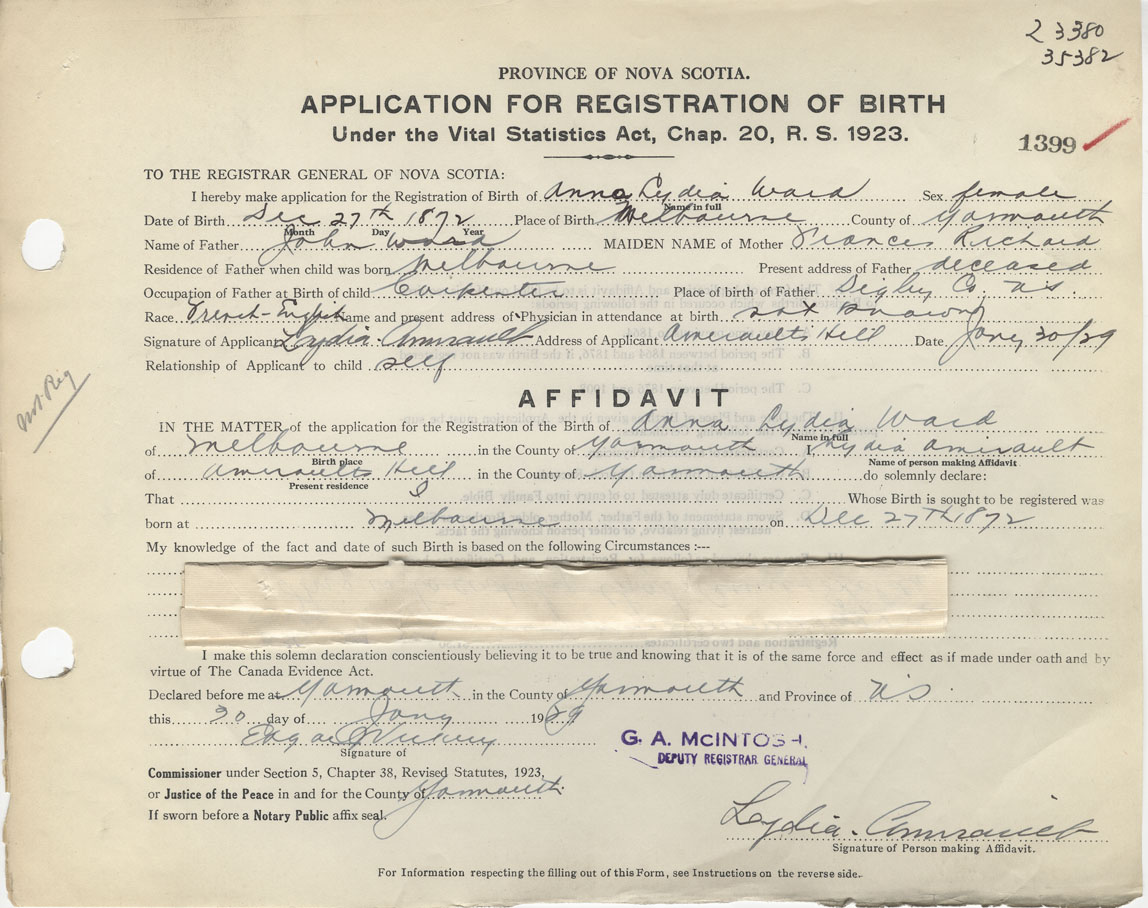 2 3380
35382
PROVINCE OF NOVA SCOTIA.
APPLICATION FOR REGISTRATION OF BIRTH
Under the Vital Statistics Act, Chap. 20, R. S. 1923.
1399
TO THE REGISTRAR GENERAL OF NOVA SCOTIA:
I hereby make application for the Registration of Birth of Anna Lydia Ward Sex female
Name in full
Date of Birth Dec 27th 1872 Place of Birth Melbourne County of Yarmouth
Month Day Year
Name of Father John Ward MAIDEN NAME of Mother Frances Richard
Residence of Father when child was born Melbourne Present address of Father deceased
Occupation of Father at Birth of child Carpenter Place of birth of Father Digby Co. N.S.
Race French-English Name and present address of Physician in attendance at birth not known
Signature of Applicant Lydia. Amirault Address of Applicant Amiraults Hill Date Jany 30/29
Relationship of Applicant to child self
Not Reg
AFFIDAVIT
IN THE MATTER of the application for the Registration of the Birth of Anna Lydia Ward
Name in full
of Melbourne in the County of Yarmouth I, Lydia Amirault
Birth place Name of person making Affidavit
of Amiraults Hill in the County of Yarmouth do solemnly declare:
Present residence
That I Whose Birth is sought to be registered was
born at Melbourne on Dec 27th 1872
My knowledge of the fact and date of such Birth is based on the following Circumstances :---
I make this solemn declaration conscientiously believing it to be true and knowing that it is of the same force and effect as if made under oath and by
virtue of The Canada Evidence Act.
Declared before me at Yarmouth in the County of Yarmouth and Province of N S
this 30 day of Jany 1929
Edgar
Signature of
G. A. McINTOSH,
DEPUTY REGISTRAR GENERAL
Commissioner under Section 5, Chapter 38, Revised Statutes, 1923,
or Justice of the Peace in and for the County of Yarmouth
If sworn before a Notary Public affix seal.
Lydia. Amirault
Signature of Person making Affidavit.
For Information respecting the filling out of this Form, see Instructions on the reverse side.